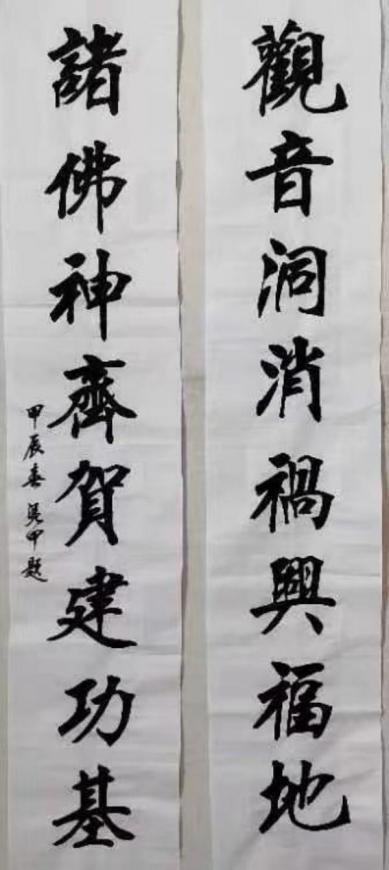 觀音洞消禍興福地
諸佛神齊賀建功基
甲辰春吳甲題